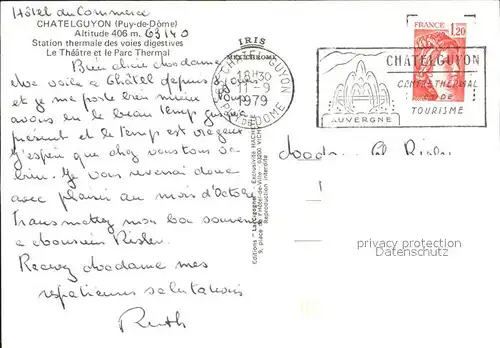 Hôtel du Commerce
CHATELGUYON (Puy-de-Dôme)
Altitude 406 m. 63140
Station thermale des voies digestives
Le Théâtre et le Parc Thermal
Bien chère Madame
Me voila à Châtel depuis 9 jours
et je me porte bien nous
avons eu le beau temps jusqu'a
présent et le temps est orageux
J'espère que chez vous tous va
bien. Je vous revenai donc
avec plaisir au mois d'Octobre
Transmettez mon bon souvenir
a Monsieur Risler
Recevez Madame mes
respectueuses salutations
Ruth
IRIS
MEXICHROME
Editions "La Cigogne"
9, place de l'Hôtel-de-Ville - 03200 VICHY
Reproduction interdite
CHATEL-GUYON
18H30
11-9
1979
PUY DE DOME
FRANCE
1,20
CHATELGUYON
CENTRE THERMAL
ET DE
TOURISME
AUVERGNE
Madame Risler
privacy protection
Datenschutz